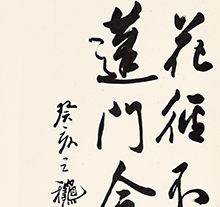 花徑不
蓬門今
癸亥之